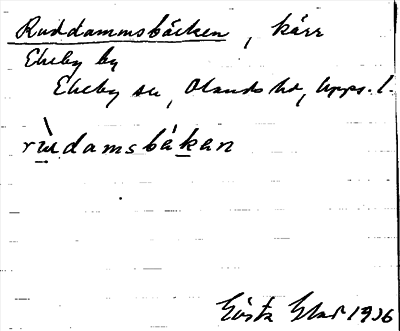 Ruddammsbäcken, kärr
Ekeby by
Ekeby sn, Olands hd, Upps. l.
rùdamsbäkan
Gösta 1936